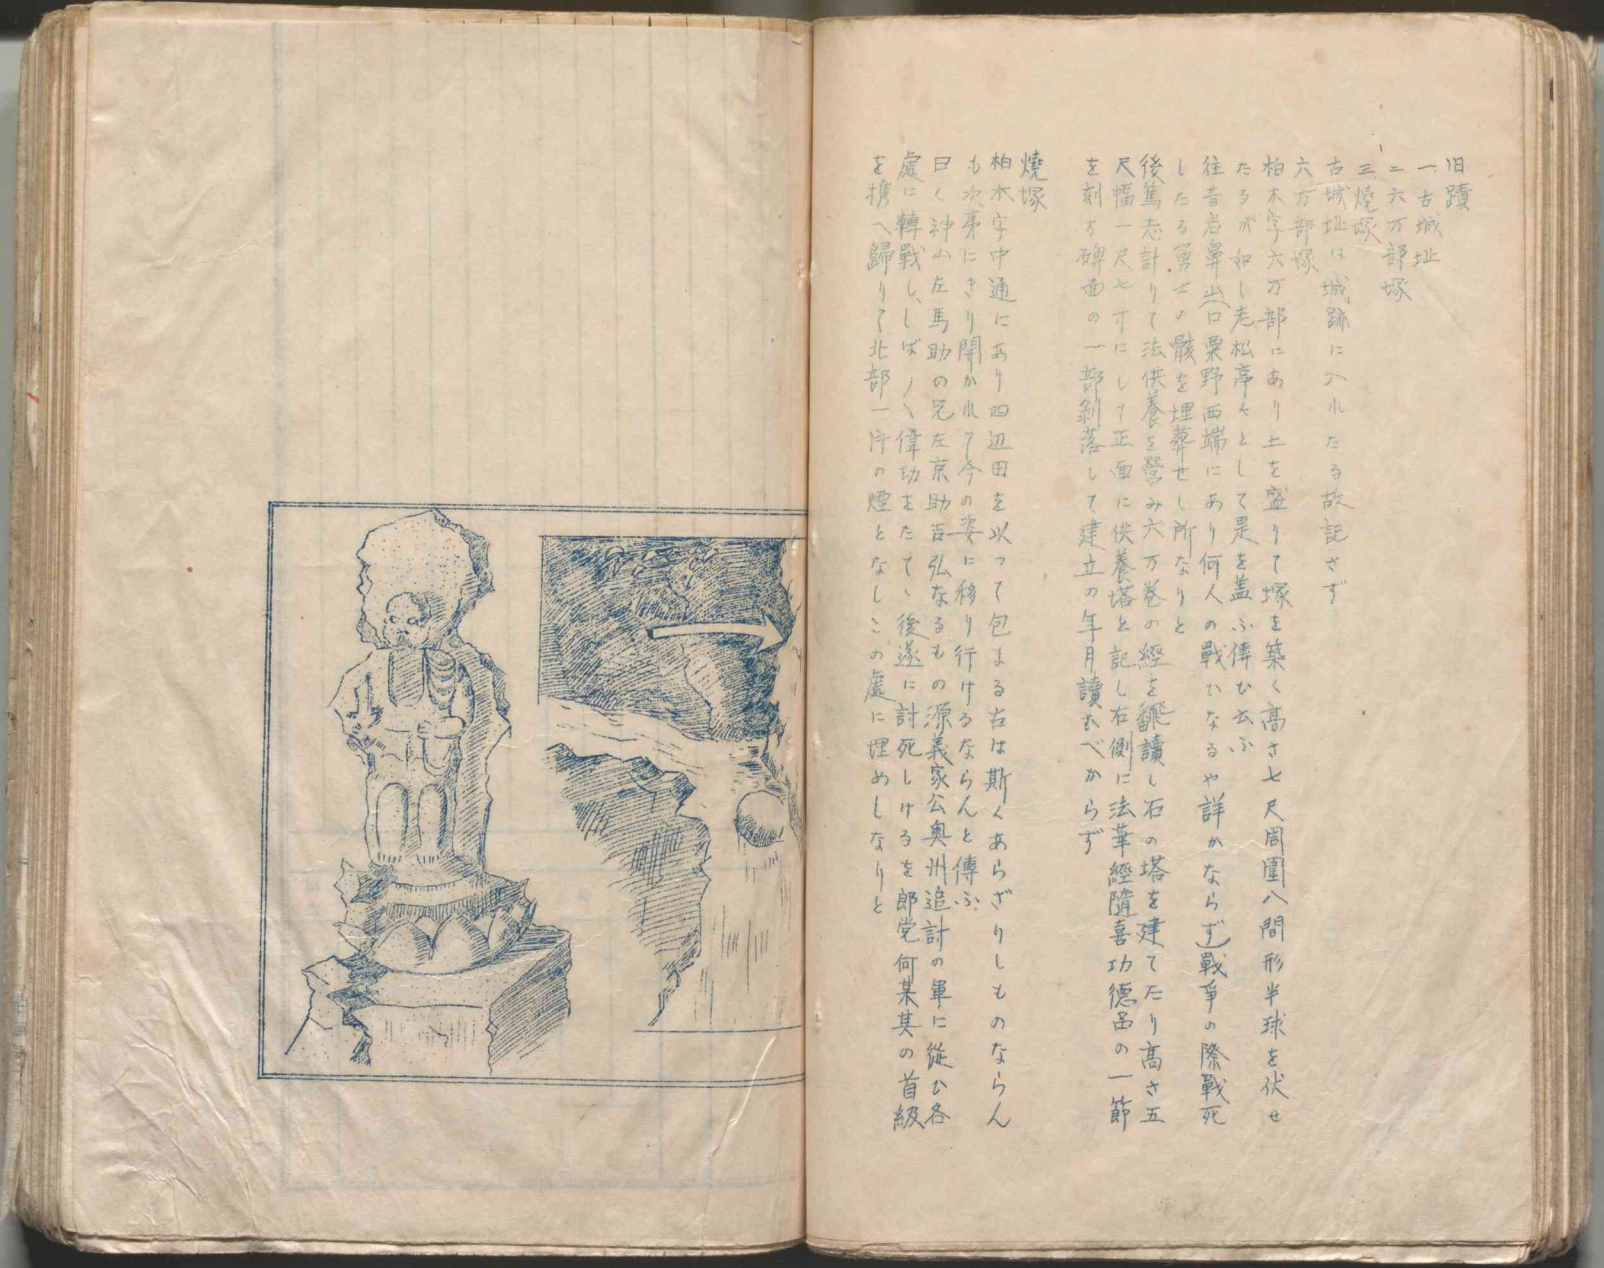 旧蹟
一、古城址
二六万部塚
三焼塚
古城址は城跡に入れたる故記さず
六万部塚
柏木字六万部にあり土を盛りて塚を築く高さ七尺周囲八間形半球を伏せ
たるが如し老松亭々として是を蓋ふ傳ひ云ふ
往昔岩鼻山(口粟野西端にあり何人の戰ひなるや詳かならず)戰爭の際戰死
したる勇士の骸を埋葬せし所なりと
後篤志計りて法供養を營み六万巻の經を飜讀し石の塔を建てたり高さ五
尺幅一尺七寸にして正面に供養塔と記し右側に法華經隨喜功德品の一節
を刻す碑面の一部剥落して建立の年月讀むべからず
燒塚
柏木字中通にあり四辺田を以つて包まる古は斯くあらざりしものならん
も次第にきり開かれて今の姿に移り行けるならんと傳ふ
曰く神山左馬助の兄左京助吉弘なるもの源義家公奥州追討の軍に從ひ各
處に轉戰し、しば〱偉功をたて、後遂に討死しけるを郎党何某其の首級
を携へ歸りて北部一片の煙となしこの處に埋めしなりと